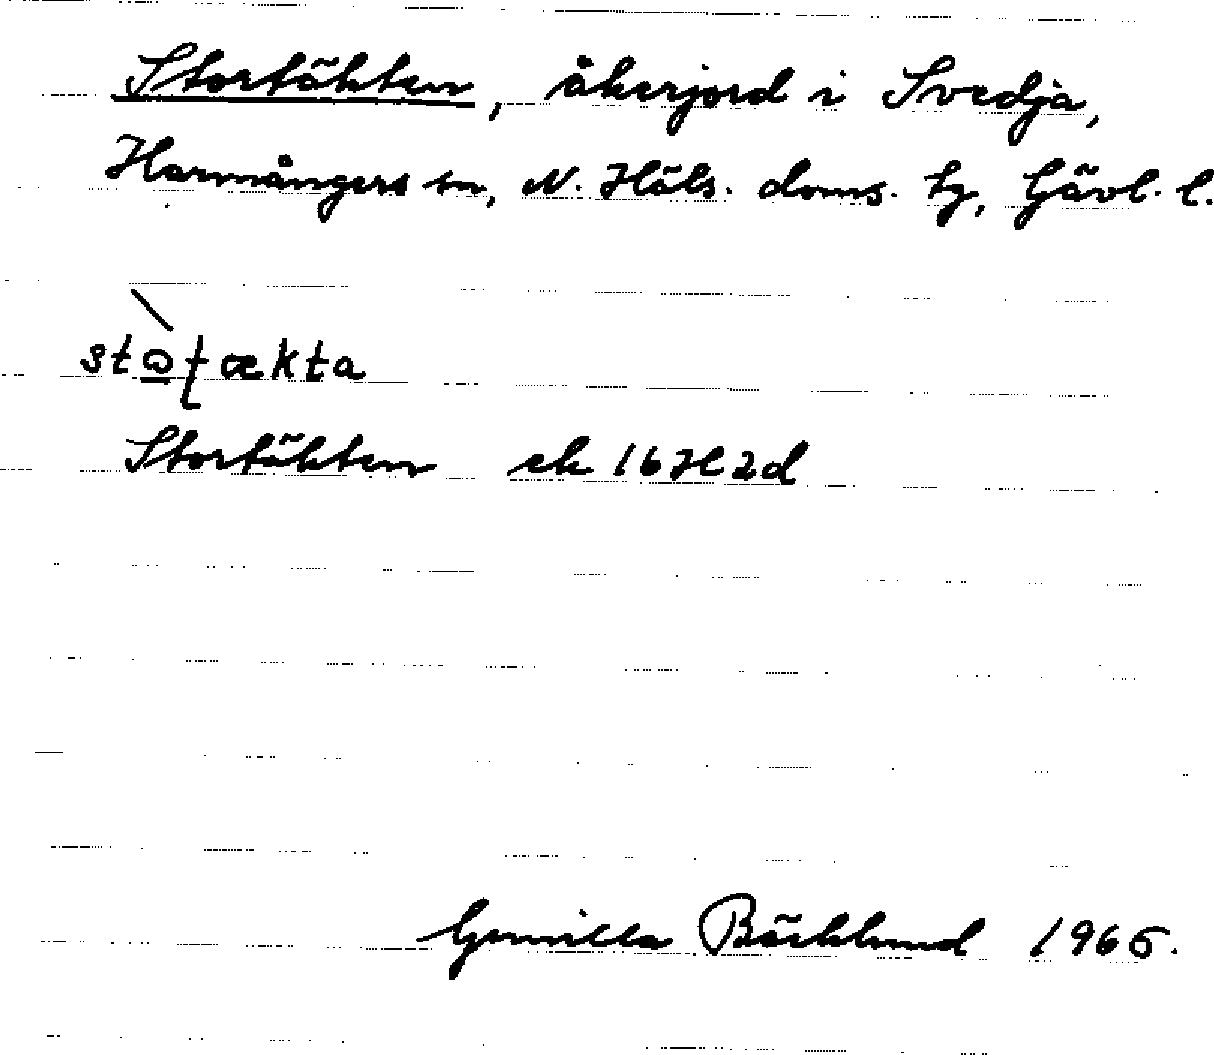 Stortäkten, åkerjord i Svedja,
Harmångers sn, N. Häls. doms. tg, Gävl. l.
Stortäkten ek 16H2d
Gunilla Bäcklund 1965.